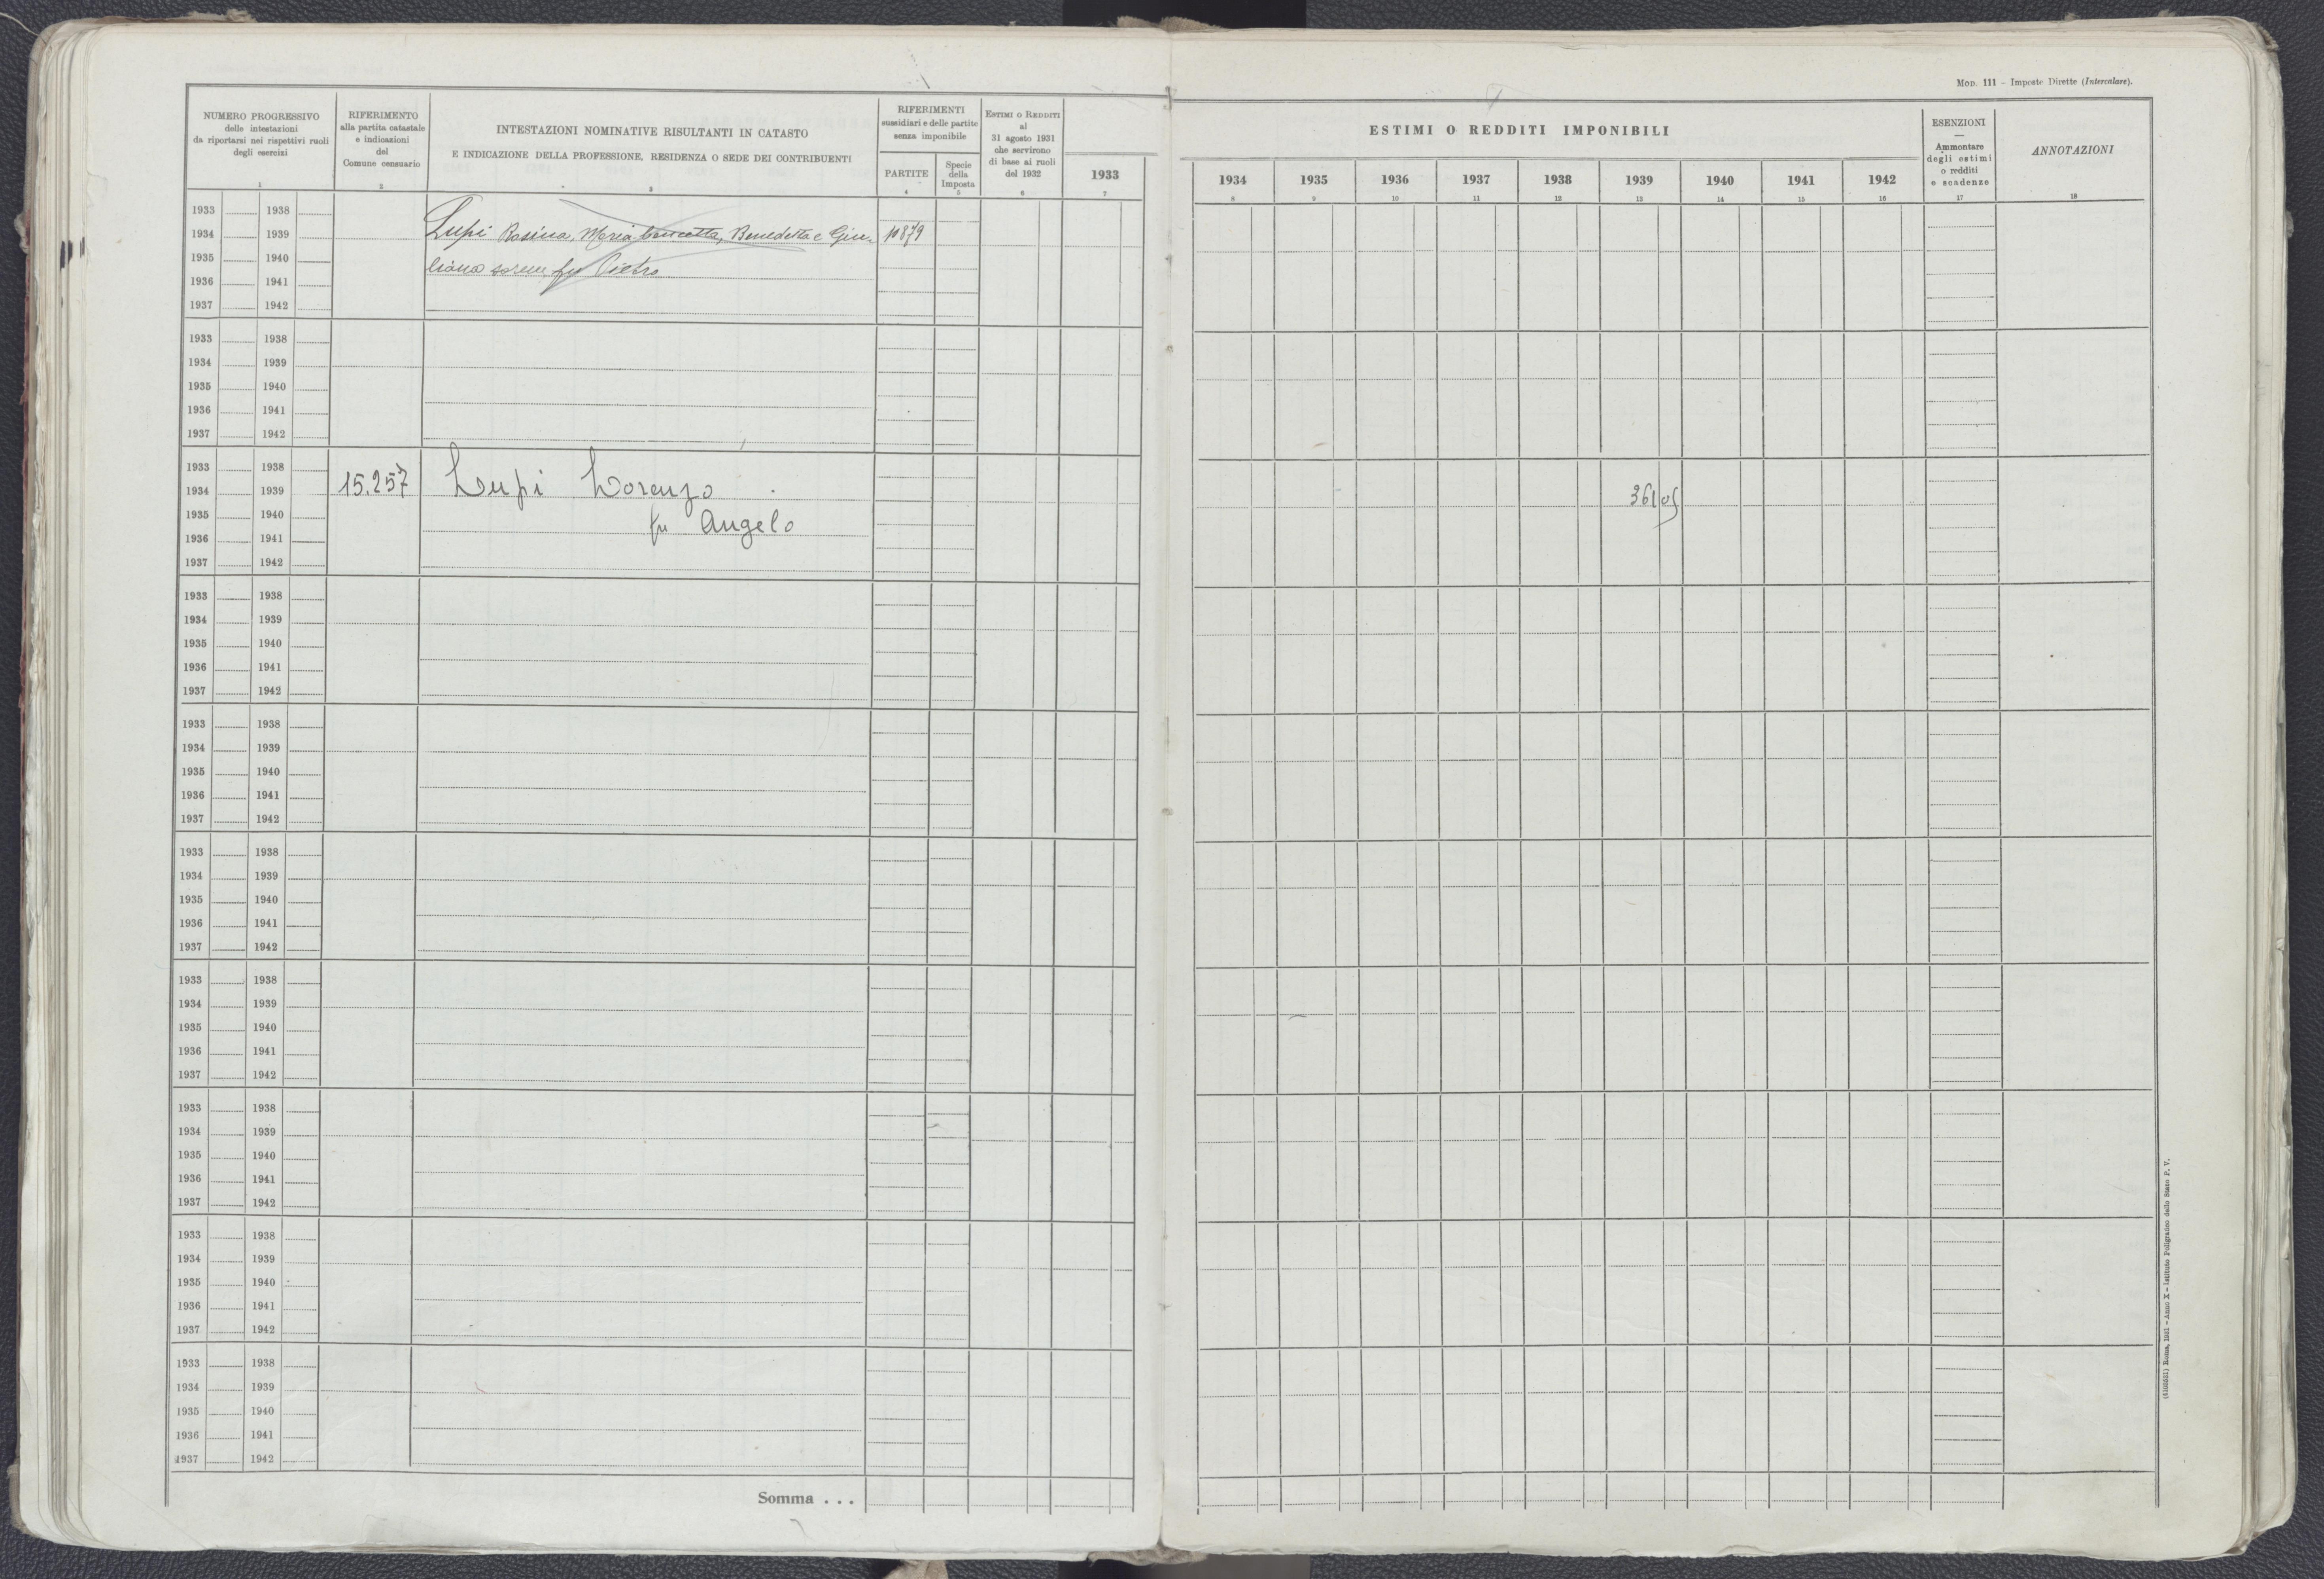 Mod. 111 - Imposte Dirette (Intercalare).
NUMERO PROGRESSIVO
delle intestazioni
da riportarsi nei rispettivi ruoli
degli esercizi
1
RIFERIMENTO
alla partita catastale
e indicazioni
del
Comune censuario
2
INTESTAZIONI NOMINATIVE RISULTANTI IN CATASTO
E INDICAZIONE DELLA PROFESSIONE, RESIDENZA O SEDE DEI CONTRIBUENTI
3
RIFERIMENTI
sussidiari e delle partite
senza imponibile
PARTITE
4
Specie
della
Imposta
5
Estimi o Redditi
al
31 agosto 1931
che servirono
di base ai ruoli
del 1932
6
1933
7
ESTIMI O REDDITI IMPONIBILI
1934 1935 1936 1937 1938 1939 1940 1941 1942
8 9 10 11 12 13 14 15 16
ESENZIONI
—
Ammontare
degli estimi
o redditi
e scadenze
17
ANNOTAZIONI
18
1933 1938
1934 1939 Lupi Rosina, Maria Concetta, Benedetta e Giu- 10879
1935 1940 liana sorelle fu Pietro
1936 1941
1937 1942
1933 1938
1934 1939
1935 1940
1936 1941
1937 1942
1933 1938
1934 1939 15.257 Lupi Lorenzo 361 05
1935 1940 fu Angelo
1936 1941
1937 1942
1933 1938
1934 1939
1935 1940
1936 1941
1937 1942
1933 1938
1934 1939
1935 1940
1936 1941
1937 1942
1933 1938
1934 1939
1935 1940
1936 1941
1937 1942
1933 1938
1934 1939
1935 1940
1936 1941
1937 1942
1933 1938
1934 1939
1935 1940
1936 1941
1937 1942
1933 1938
1934 1939
1935 1940
1936 1941
1937 1942
1933 1938
1934 1939
1935 1940
1936 1941
1937 1942
Somma . . .
Roma, 1931 - Anno X - Istituto Poligrafico dello Stato P. V.